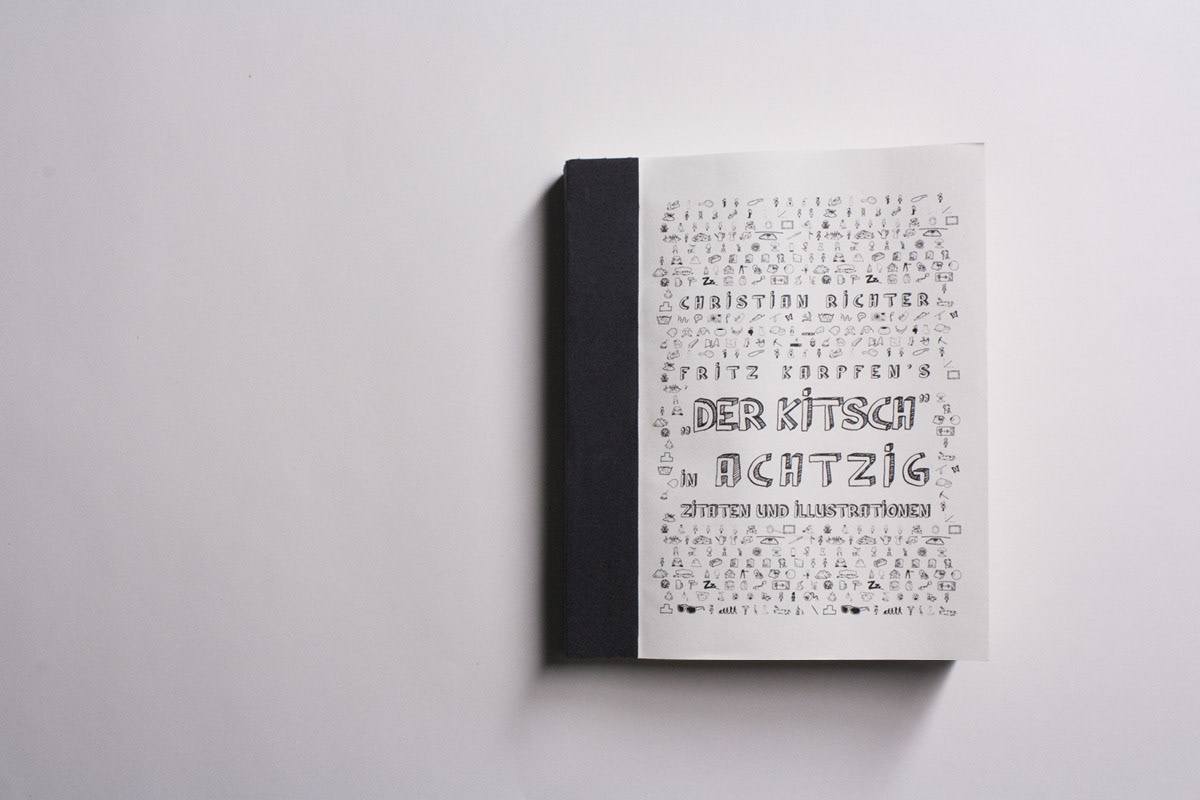 Zz Zz
CHRiSTiAN RiCHTER
FRiTZ KARPFEN'S
„DER KiTSCH”
iN ACHTZiG
ZiTATEN UND iLLUSTRATiONEN
Zz Zz